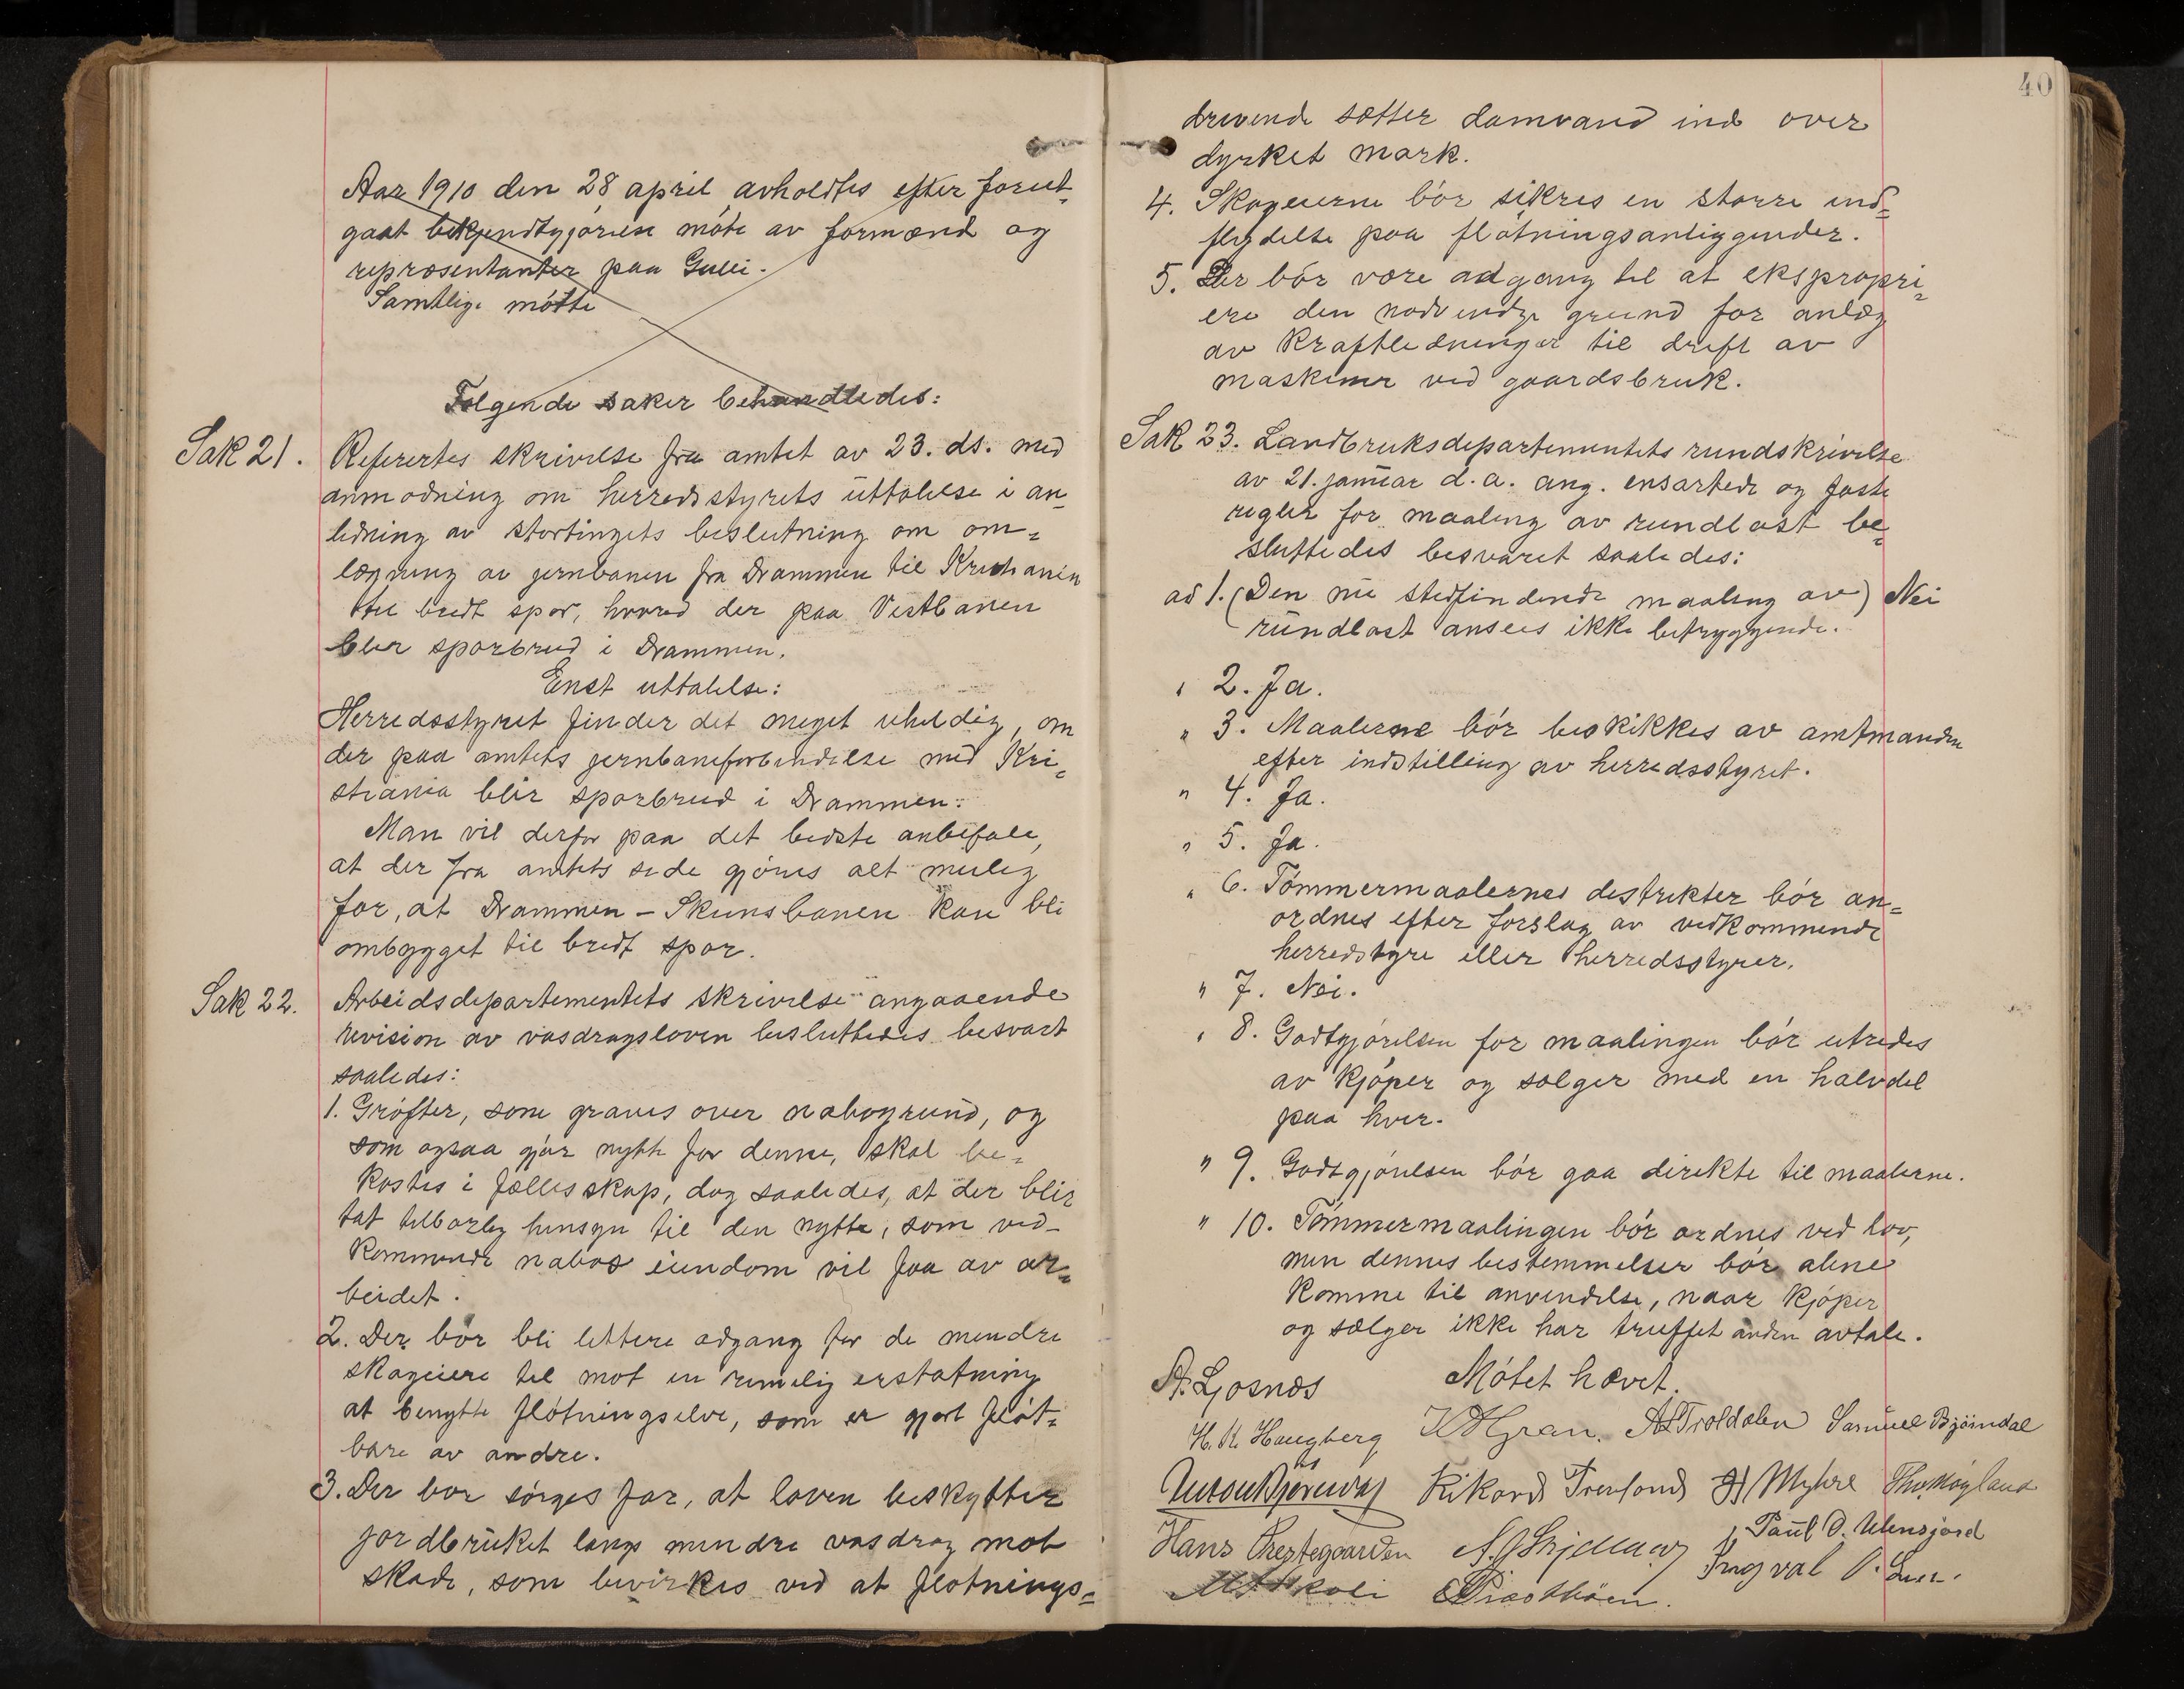 Aar 1910 den 28 april avholdtes efter forut-
gaat bekjendtgjörelse möte av formænd og
repræsentanter paa Gulli.
Samtlige mötte
Følgende saker behandledes:
Sak 21. Refertes skrivelse fra amtet av 23. ds. med
anmodning om herredsstyrets uttalelse i an-
ledning av stortingets beslutning om om=
lægning av jernbanen fra Drammen til Kristiania
til bredt spor, hvorved der paa Vestbanen
blir sporbrud i Drammen.
Enst uttalelse:
Herredsstyret finder det meget uheldig, om
der paa amtets jernbaneforbindelse med Kri=
stiania blir sporbrud i Drammen.
Man vil derfor paa det bedste anbefale,
at der fra amtets side gjöres alt mulig
for, at Drammen - Skiensbanen kan bli
ombygget til bredt spor.
Sak 22. Arbeidsdepartementets skrivelse angaaende
revision av vasdragsloven besluttedes besvart
saaledes:
1. Gröfter, som graves over nabogrund, og
som ogsaa gjör nytte for denne, skal be=
kostes i fællesskap, dog saaledes, at der blir
tat tilbørlig hensyn til den nytte, som ved-
kommende nabos eiendom vil faa av ar=
beidet.
2. Der bör bli lettere adgang for de mindre
skogeiere til mot en rimelig erstatning
at benytte flötningselve, som er gjort flöt=
bare av andre.
3. Der bør sörges for, at loven beskytter
jordbruket langs mindre vasdrag mot
skade, som bevirkes ved at flötnings=
40
drivende sætter damvand ind over
dyrket mark.
4. Skogeierne bör sikres en større ind=
flydelse paa flötningsanliggender.
5. Der bör være adgang til at ekspropri=
ere den nødvendige grund for anlæg
av kraftledninger til drift av
maskiner ved gaardsbruk.
Sak 23. Landbruksdepartementets rundskrivelse
av 21. januar d.a. ang. ensartede og faste
regler for maaling av rundlast be=
sluttedes besvaret saaledes:
ad 1. (Den nu stedfindende maaling av) Nei
rundlast ansees ikke betryggende.
" 2. Ja.
" 3. Maalerne bör beskikkes av amtmanden
efter indstilling av herredsstyret.
" 4. Ja.
" 5. Ja.
" 6. Tömmermaalernes distrikter bör an=
ordnes efter forslag av vedkommende
herredstyre eller herredsstyrer.
" 7. Nei.
" 8. Godtgjörelsen for maalingen bör utredes
av kjöper og sælger med en halvdel
paa hver.
" 9. Godtgjörelsen bör gaa direkte til maalerne.
" 10. Tömmermaalingen bör ordnes ved lov,
men dennes bestemmelser bör alene
komme til anvendelse, naar kjöper
og sælger ikke har truffet anden avtale.
Mötet hævet.
A. Ljosnæs
H. K. Haugberg Gran. Troldalen Samuel Bjöindal
Rikard Myhre
Hans Prestegaarden Paul O.
Ingval